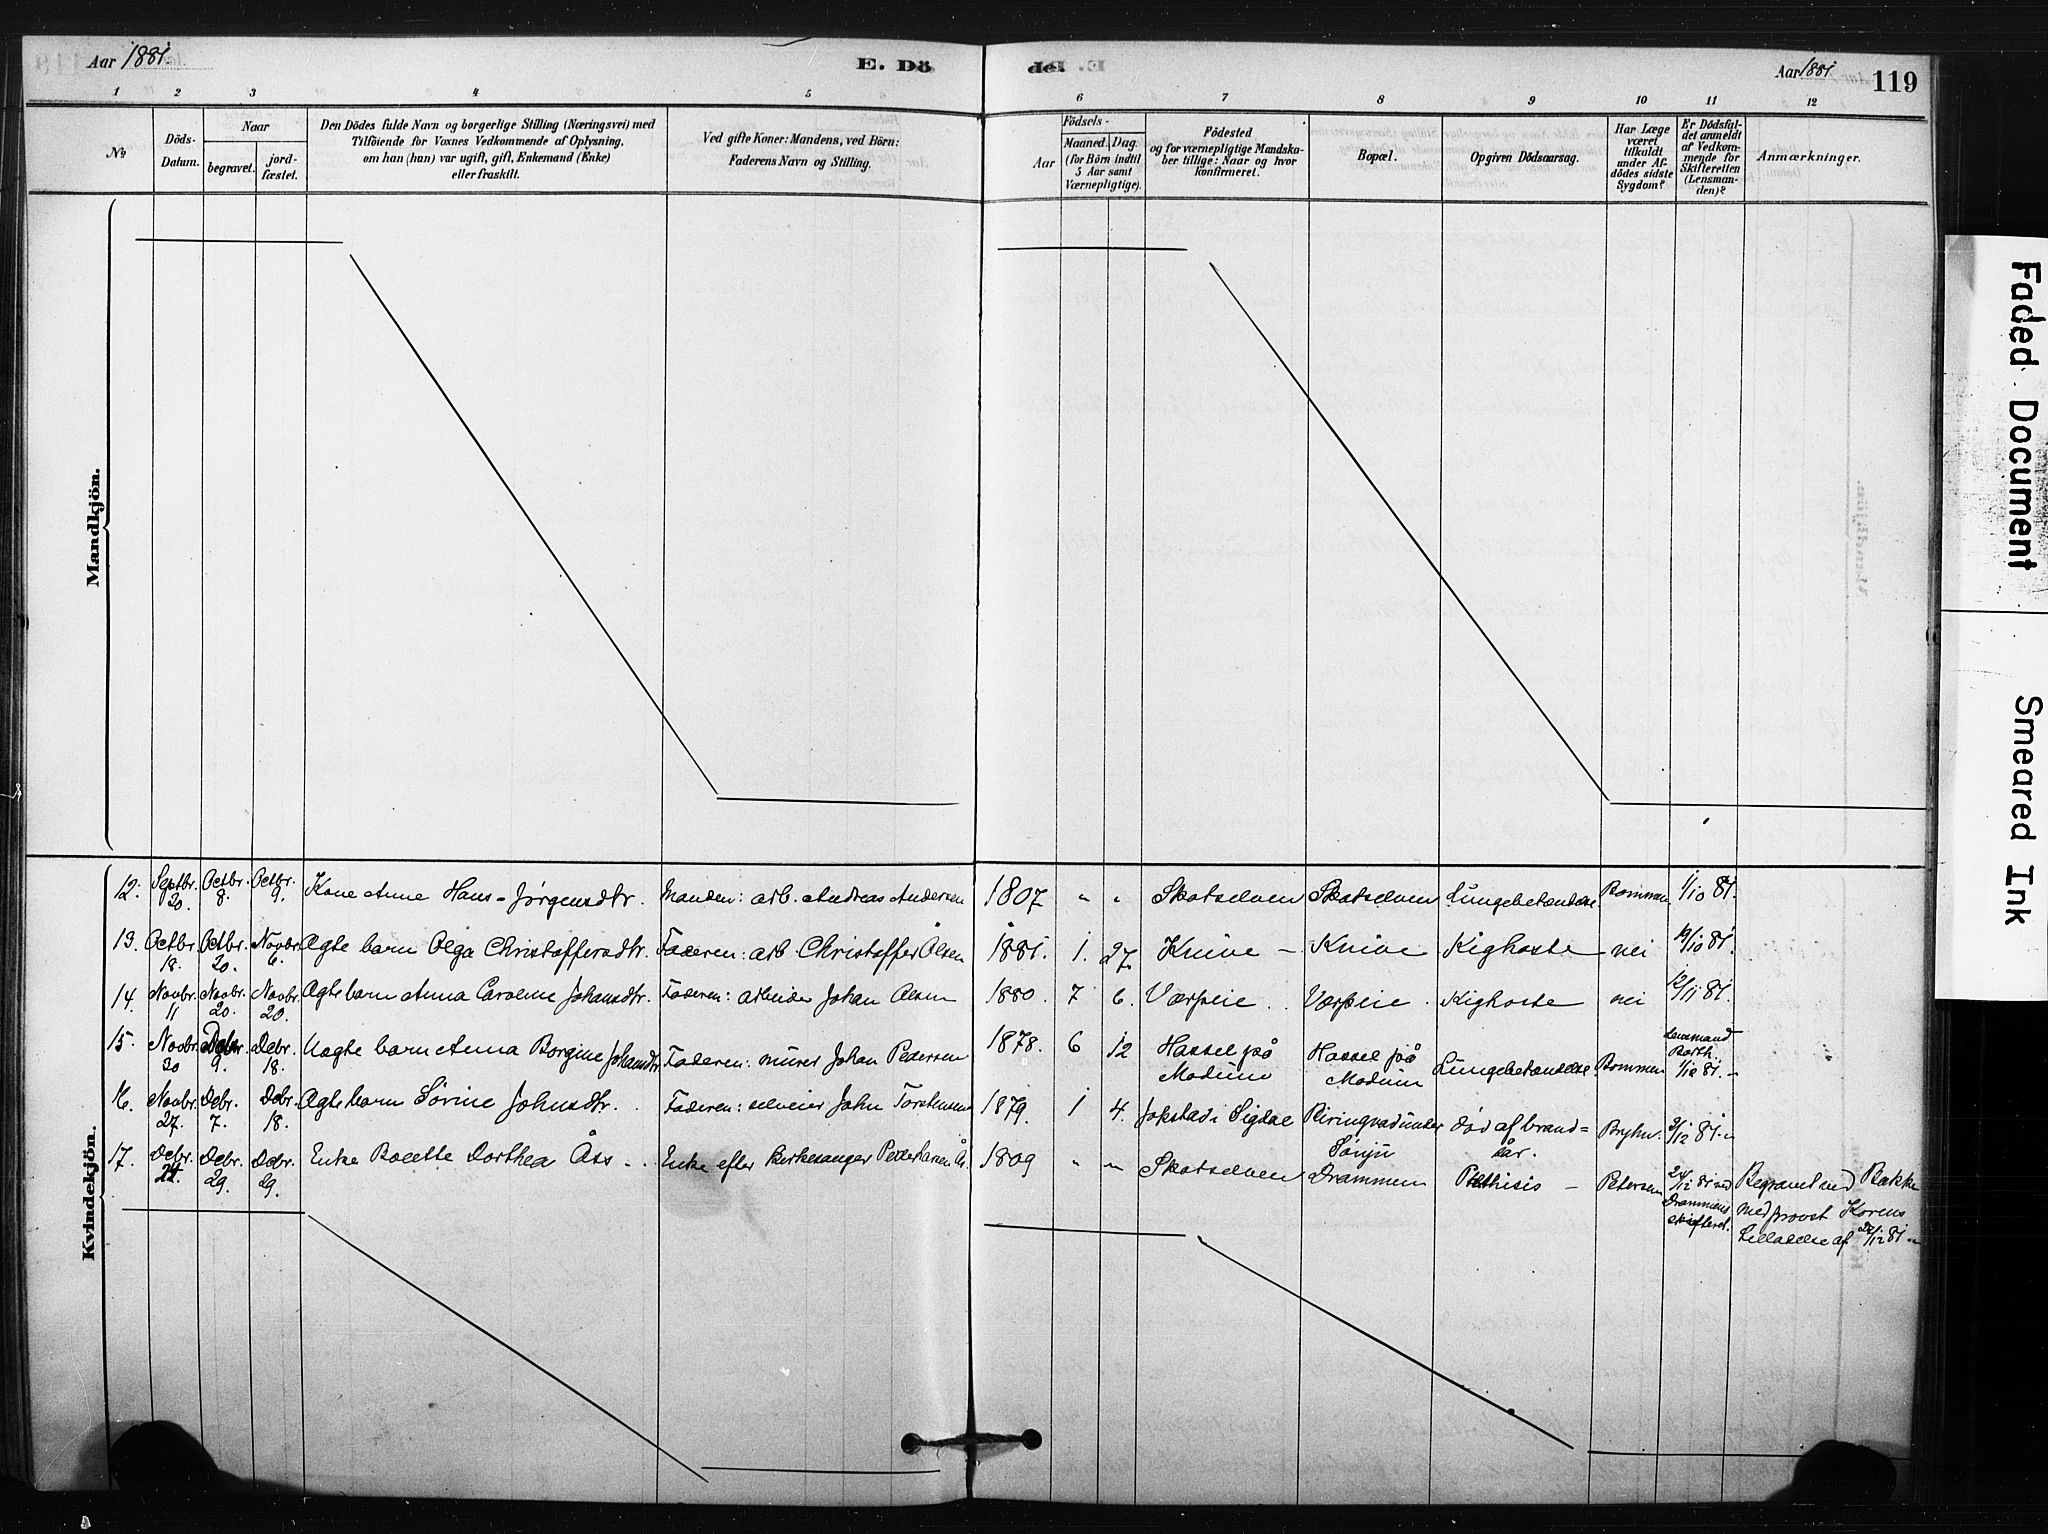 Aar 1881.
E. Dö
de.
Aar 1881.
119
1 2 3 4 5 6 7 8 9 10 11 12
No
Döds-Datum.
Naar
begravet.
jord-fæstet.
Den Dödes fulde Navn og borgerlige Stilling (Næringsvei) med
Tilföiende for Voxnes Vedkommende af Oplysning,
om han (hun) var ugift, gift, Enkemand (Enke)
eller fraskilt.
Ved gifte Koner: Mandens, ved Börn:
Faderens Navn og Stilling.
Födsels-
Aar
Maaned.
Dag.
(for Börn indtil
5 Aar samt
Værnepligtige).
Födested
og for værnepligtige Mandska-
ber tillige: Naar og hvor
konfirmeret.
Bopæl.
Opgiven Dödsaarsag.
Har Læge
været
tilkaldt
under Af-
dödes sidste
Sygdom?
Er Dödsfal-
det anmeldt
af Vedkom-
mende for
Skifteretten
(Lensman-
den)?
Anmærkninger.
Mandkjön.
Kvindekjön.
12. Septbr. 30. Octbr. 8. Octbr. 9. Kone Anne Hans-Jørgensdtr. Manden: arb. Andreas Andersen 1807 " " Skotselven Skotselven Lungebetændelse Bommen 1/10 81.
13. Octbr. 18. Octbr. 30. Novbr. 6. Ægte barn Olga Christoffersdtr. Faderen: arb. Christoffer Olsen 1881. 1. 27. Knive – Knive Kighoste nei 19/10 81.
14. Novbr. 11 Novbr. 20. Novbr. 20. Ægte barn Anna Caroline Johansdtr. Faderen: arbeider Johan Olsen 1880. 7 6. Værpeie Værpeie Kighoste nei 12/11 81.
15. Novbr. 30 Debr. 9. Debr. 18. Uægte barn Anna Borgine Johansdtr. Faderen: murer Johan Pedersen 1878. 6 12 Hassel på Modum Hassel på Modum Lungebetændelse Bommen Lensmand Barth. 1/12 81. –
16. Novbr. 27. Debr. 7. Debr. 18. Ægte barn Sørine Johnsdtr. Faderen: selveier John Torstensen 1879. 1 4. Jokstad i Sigdal under død af brand=sår. Bryhn. 3/12 81.
17. Debr. 24. Debr. 29. Debr. 29. Enke Boelette Dorthea Åss. Enke efter kirkesanger Peder Larsen Ås. 1809 " " Skotselven Drammen Phthisis – Petersen 24/12 81 ved Drammens skifteret. Begravet ved Bakke
med provst Korens
tilladelse af 28/12 81.
Faded Document
Smeared Ink